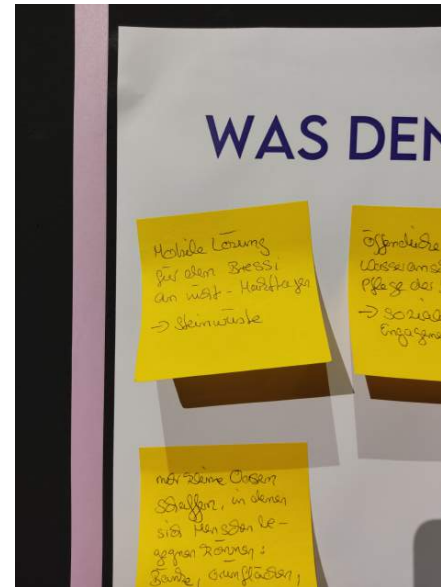 WAS DEN
Mobile Lösung
für den Bressi
an nicht-Markttagen
→ Steinwüste
öffentliche
Wasserans
Pflege der
→ soziale
Engageme
mehr kleine Oasen
schaffen, in denen
sich Menschen be-
gegnen können:
Bänke, Grünflächen,